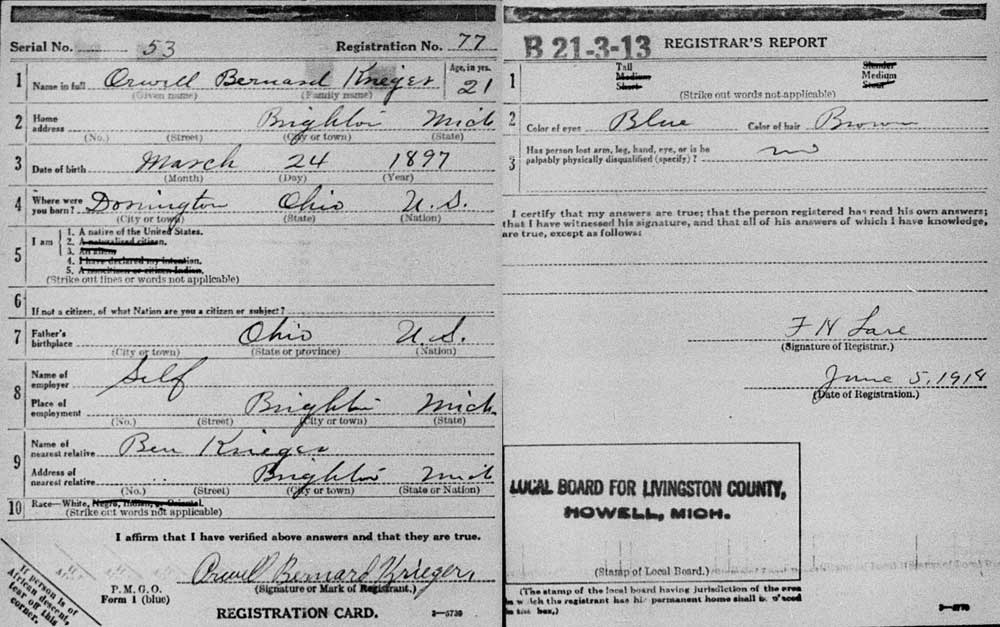 Serial No. 53 Registration No. 77
1 Name in full Orwell Bernard Krieger Age, in yrs. 21
(Given name) (Family name)
2 Home address Brighton Mich
(No.) (Street) (City or town) (State)
3 Date of birth March 24 1897
(Month) (Day) (Year)
4 Where were you born? Ohio U.S.
(City or town) (State) (Nation)
5 I am
1. A native of the United States.
2. A naturalized citizen.
3. An alien.
4. I have declared my intention.
5. A noncitizen or citizen Indian.
(Strike out lines or words not applicable)
6 If not a citizen, of what Nation are you a citizen or subject?
7 Father's birthplace Ohio U.S.
(City or town) (State or province) (Nation)
8 Name of employer Self
Place of employment Brighton Mich
(No.) (Street) (City or town) (State)
9 Name of nearest relative Ben Krieger
Address of nearest relative Brighton Mich
(No.) (Street) (City or town) (State or Nation)
10 Race—White, Negro, Indian, or Oriental.
(Strike out words not applicable)
I affirm that I have verified above answers and that they are true.
If person is of
African descent,
tear off this
corner.
P. M. G. O.
Form 1 (blue)
Orwell Bernard Krieger
(Signature or Mark of Registrant.)
REGISTRATION CARD.
B 21-3-13 REGISTRAR'S REPORT
1 Tall Slender
Medium Medium
Short Stout
(Strike out words not applicable)
2 Color of eyes Blue Color of hair Brown
3 Has person lost arm, leg, hand, eye, or is he
palpably physically disqualified (specify)? no
I certify that my answers are true; that the person registered has read his own answers;
that I have witnessed his signature, and that all of his answers of which I have knowledge,
are true, except as follows:
F N
(Signature of Registrar.)
June 5, 1918
(Date of Registration.)
LOCAL BOARD FOR LIVINGSTON COUNTY,
HOWELL, MICH.
(Stamp of Local Board.)
(The stamp of the local board having jurisdiction of the area
in which the registrant has his permanent home shall be placed
in this box.)